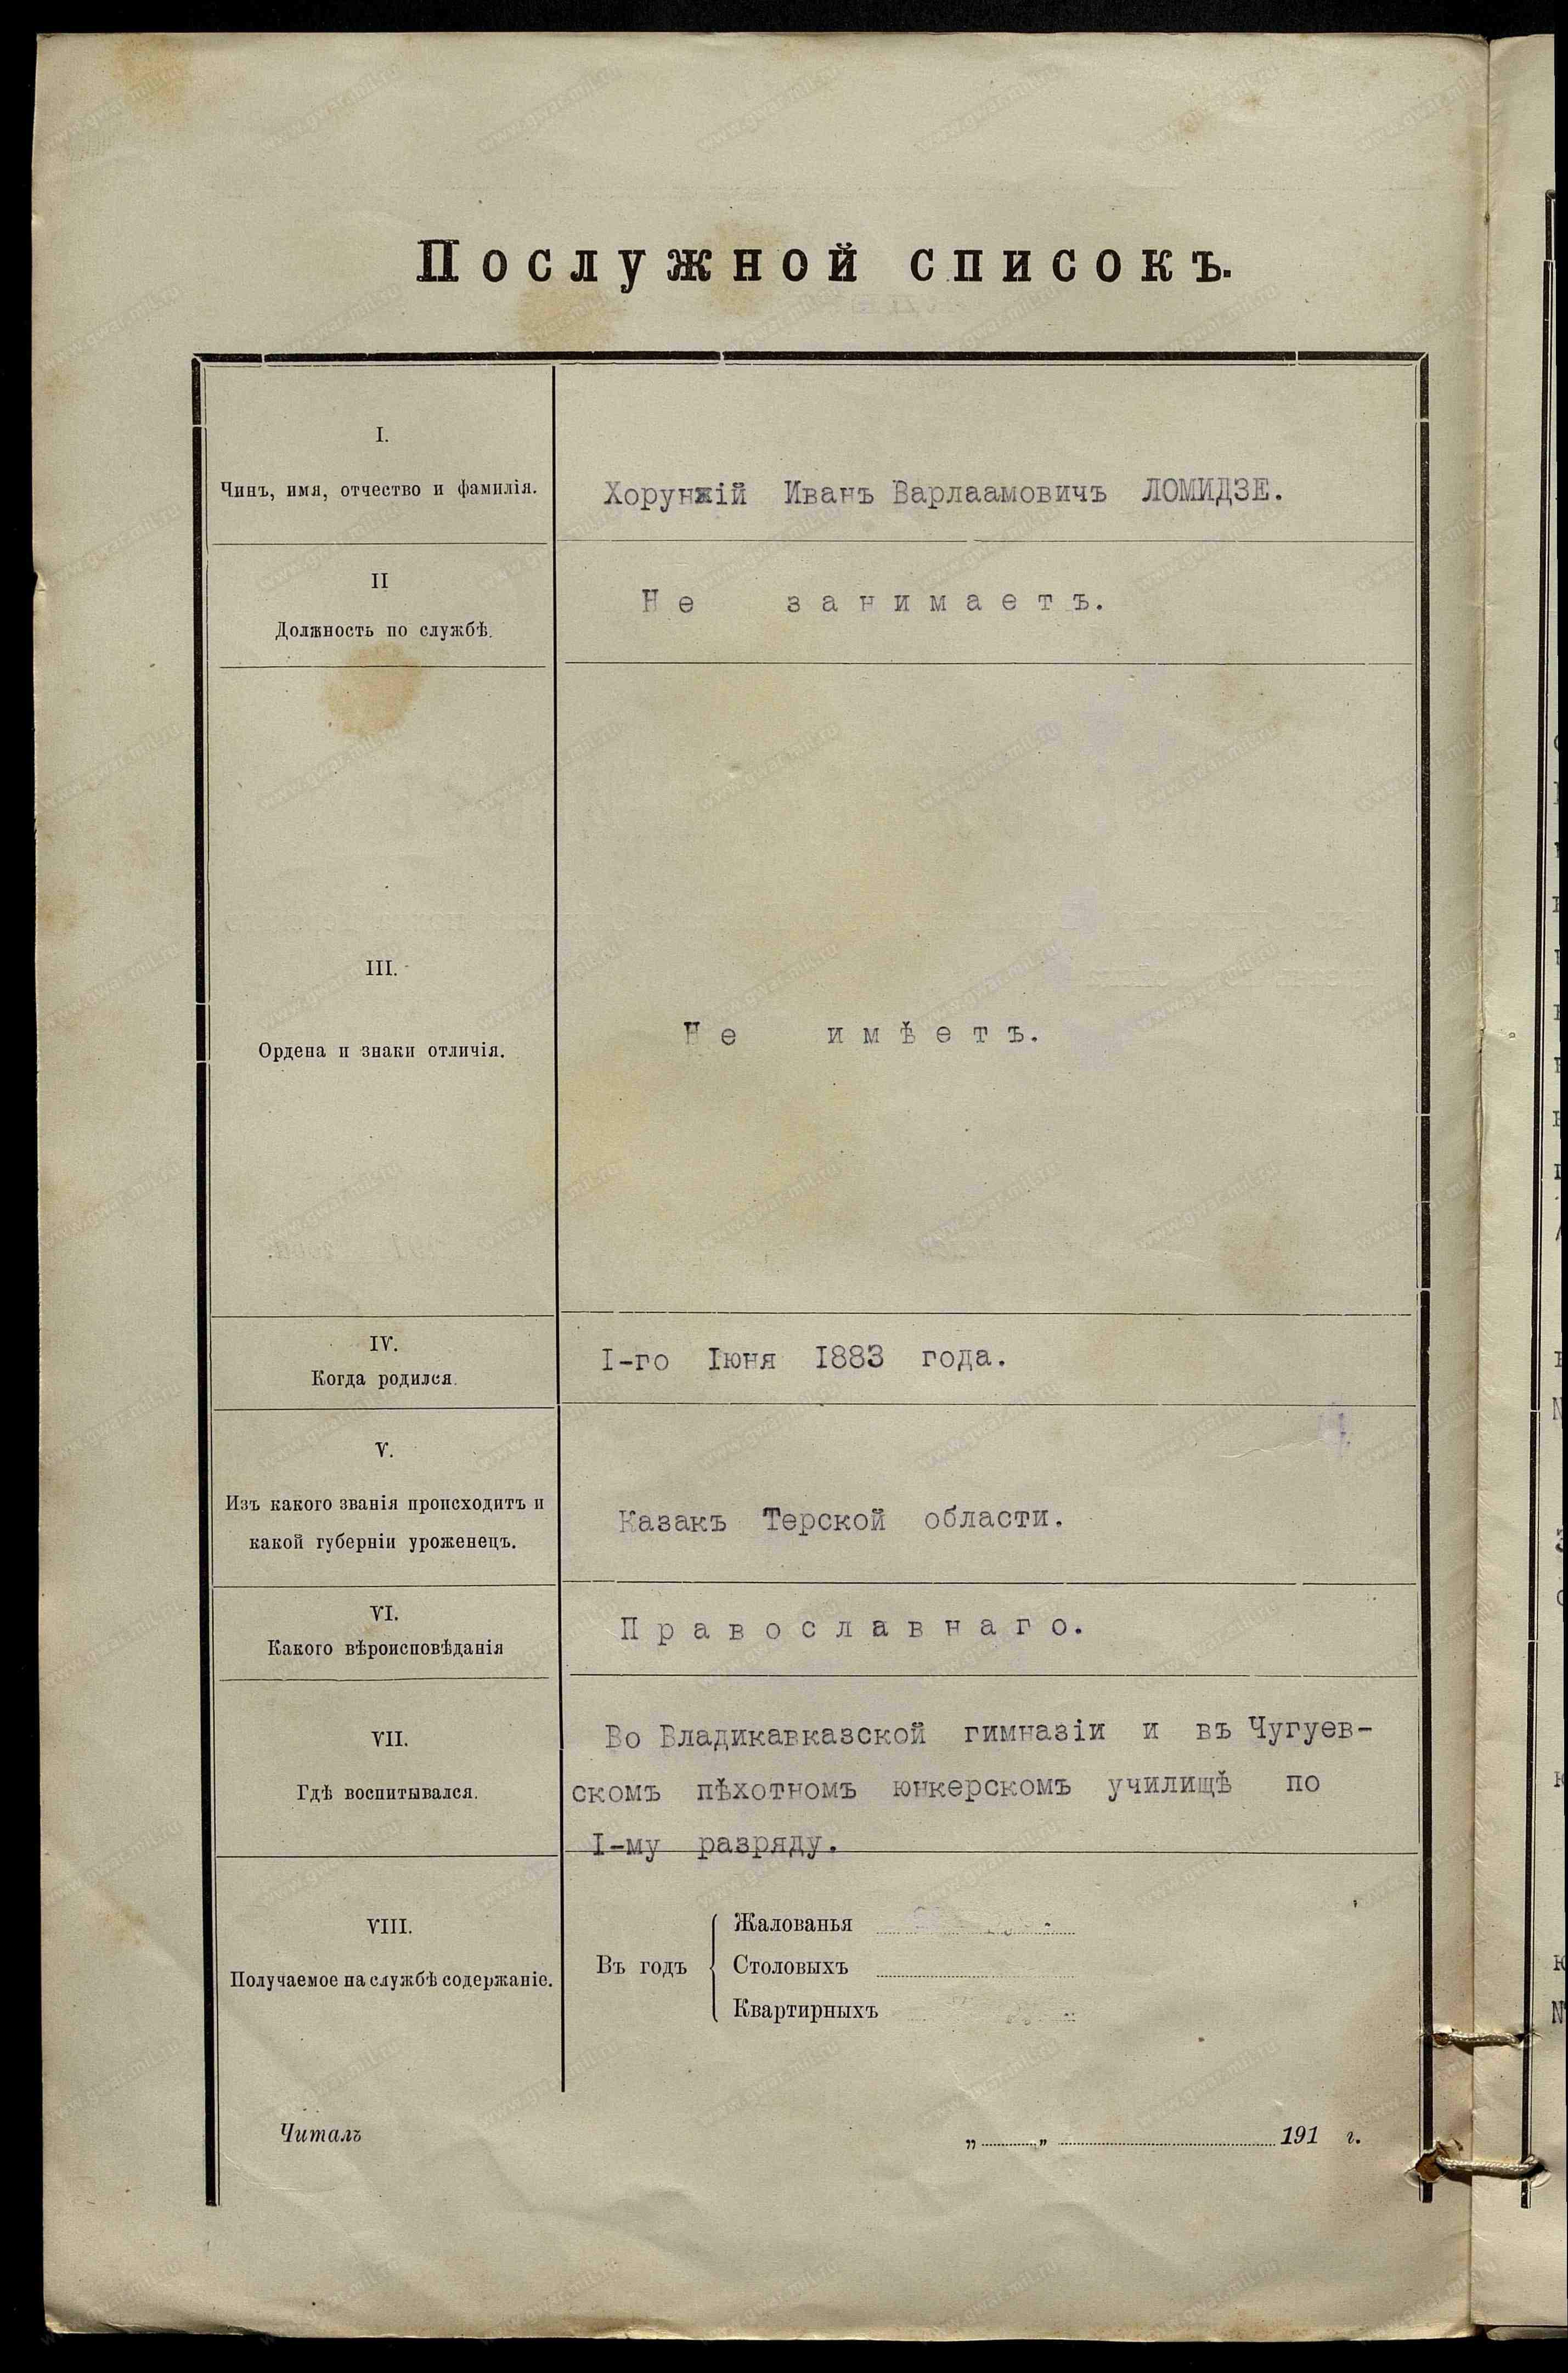 Послужной списокъ.
I.
Чинъ, имя, отчество и фамилія.
Хорунжій Иванъ Варлаамовичъ ЛОМИДЗЕ.
II
Должность по службѣ.
Не занимаетъ.
III.
Ордена и знаки отличія.
Не имѣетъ.
IV.
Когда родился.
I-го Іюня I883 года.
V.
Изъ какого званія происходитъ и
какой губерніи уроженецъ.
Казакъ Терской области.
VI.
Какого вѣроисповѣданія
Православнаго.
VII.
Гдѣ воспитывался.
Во Владикавказской гимназіи и въ Чугуев-
скомъ пѣхотномъ юнкерскомъ училищѣ по
I-му разряду.
VIII.
Получаемое на службѣ содержаніе.
Въ годъ
Жалованья
Столовыхъ
Квартирныхъ
Читалъ
„ „ 191 г.
www.gwar.mil.ru